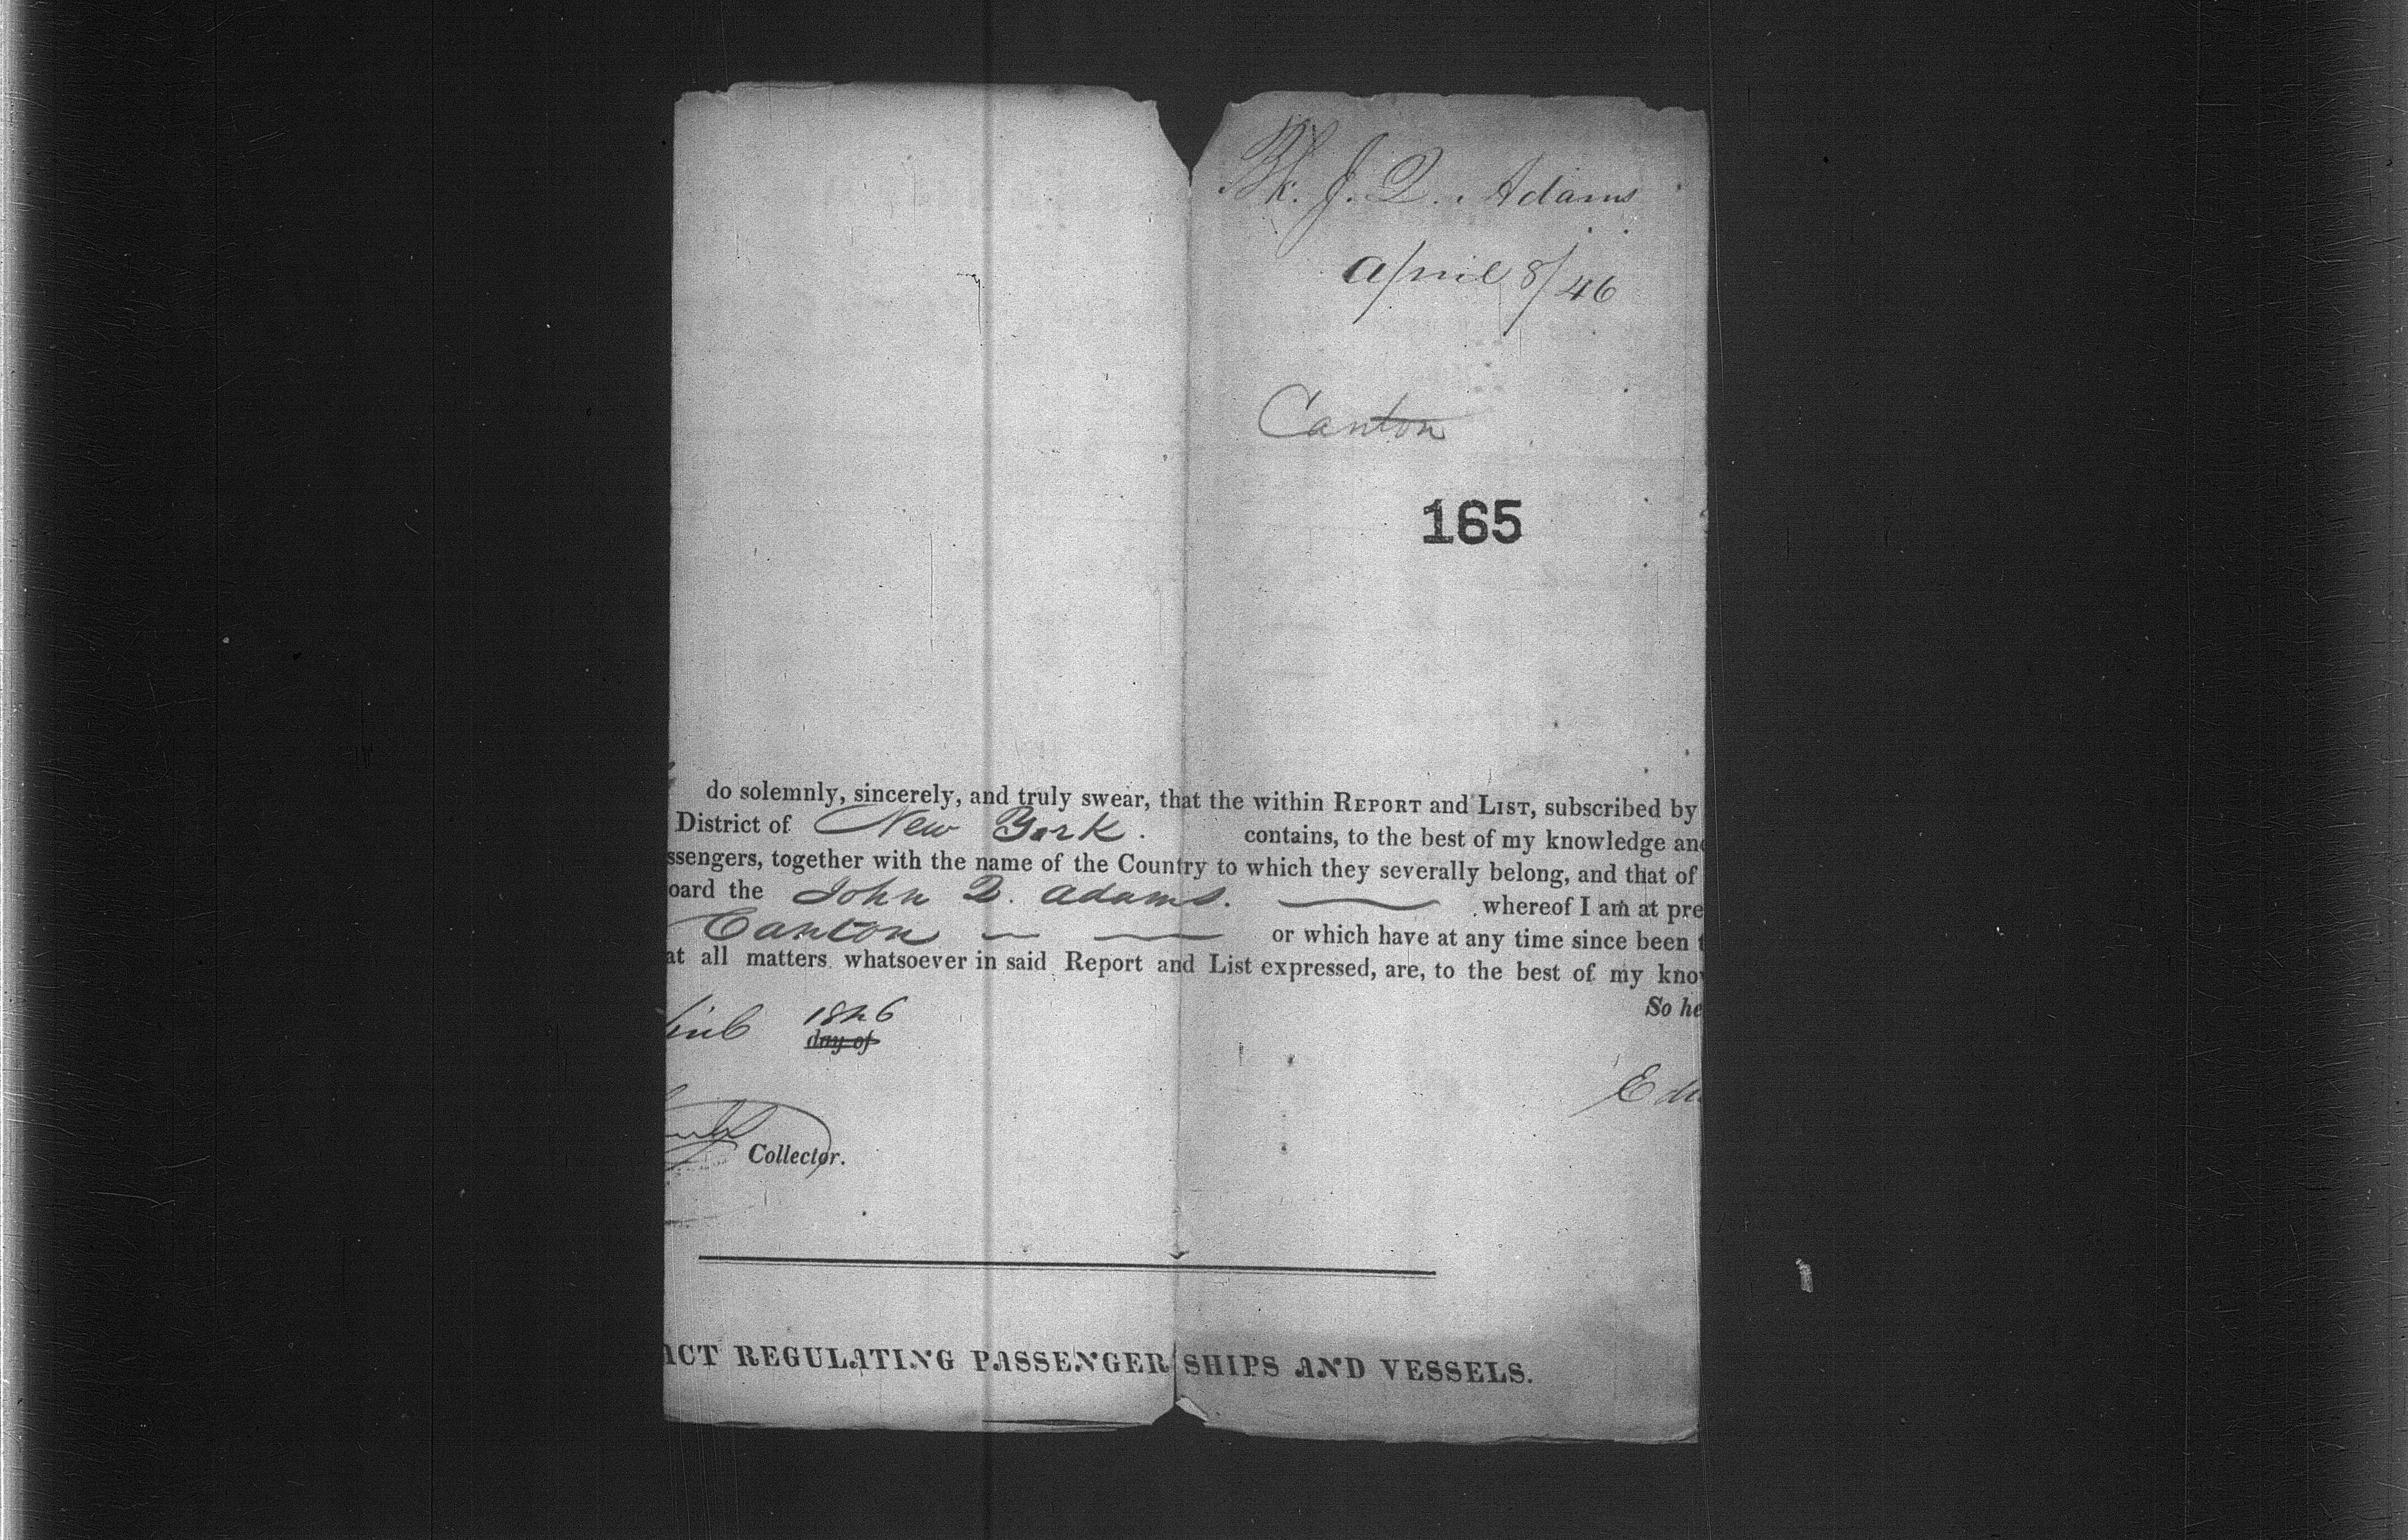 Bk. J. Q. Adams
April 8/46
Canton
165
do solemnly, sincerely, and truly swear, that the within REPORT and LIST, subscribed by
District of New York. contains, to the best of my knowledge and
ssengers, together with the name of the Country to which they severally belong, and that of
oard the John Q. Adams. whereof I am at pre
Canton — — or which have at any time since been t
at all matters whatsoever in said Report and List expressed, are, to the best of my know
So he
1846
day of
Edw
Collector.
ACT REGULATING PASSENGER SHIPS AND VESSELS.